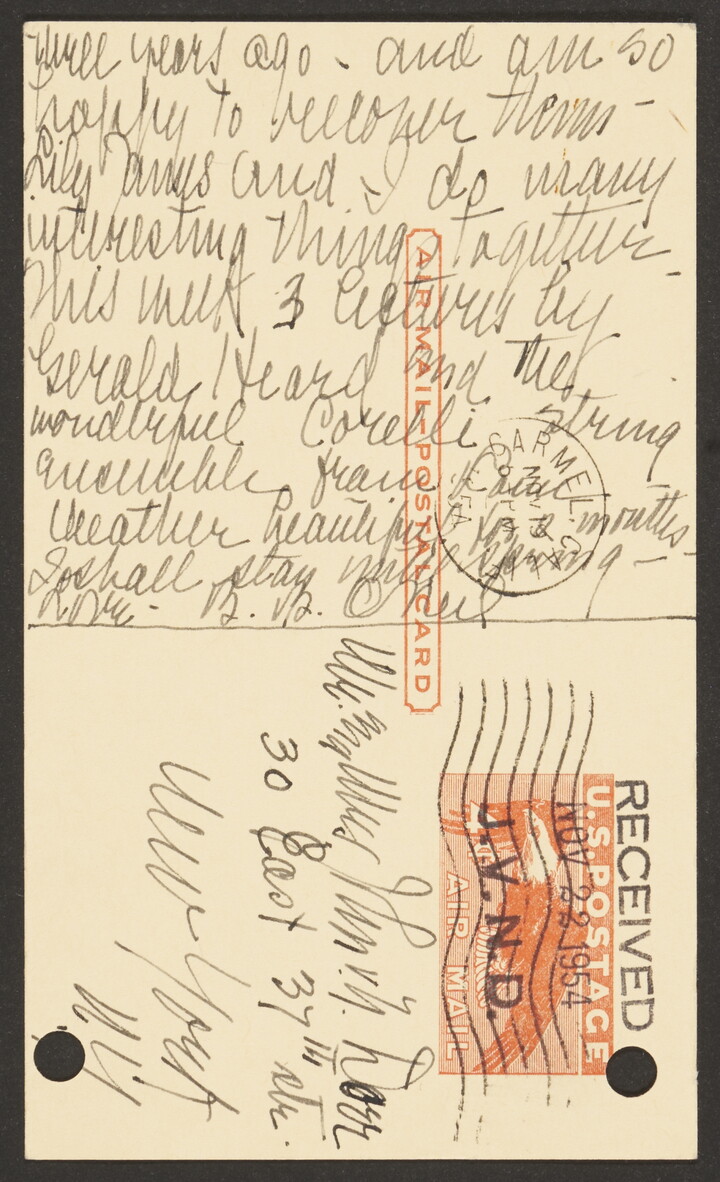 three years ago - and am so
happy to recover them -
Lily James and I do many
interesting things together -
This week 3 lectures by
Gerald Heard and the
wonderful Corelli string
ensemble from
Weather beautiful for 2 months -
I shall stay until spring -
Love - B. B. O'Neil
AIR MAIL-POSTAL CARD
CARMEL
NOV
Mr. & Mrs John V. N. Dorr
30 East 37th str.
New York
N.Y.
U.S. POSTAGE
4¢
AIR MAIL
RECEIVED
NOV 22 1954
J.V.N.D.